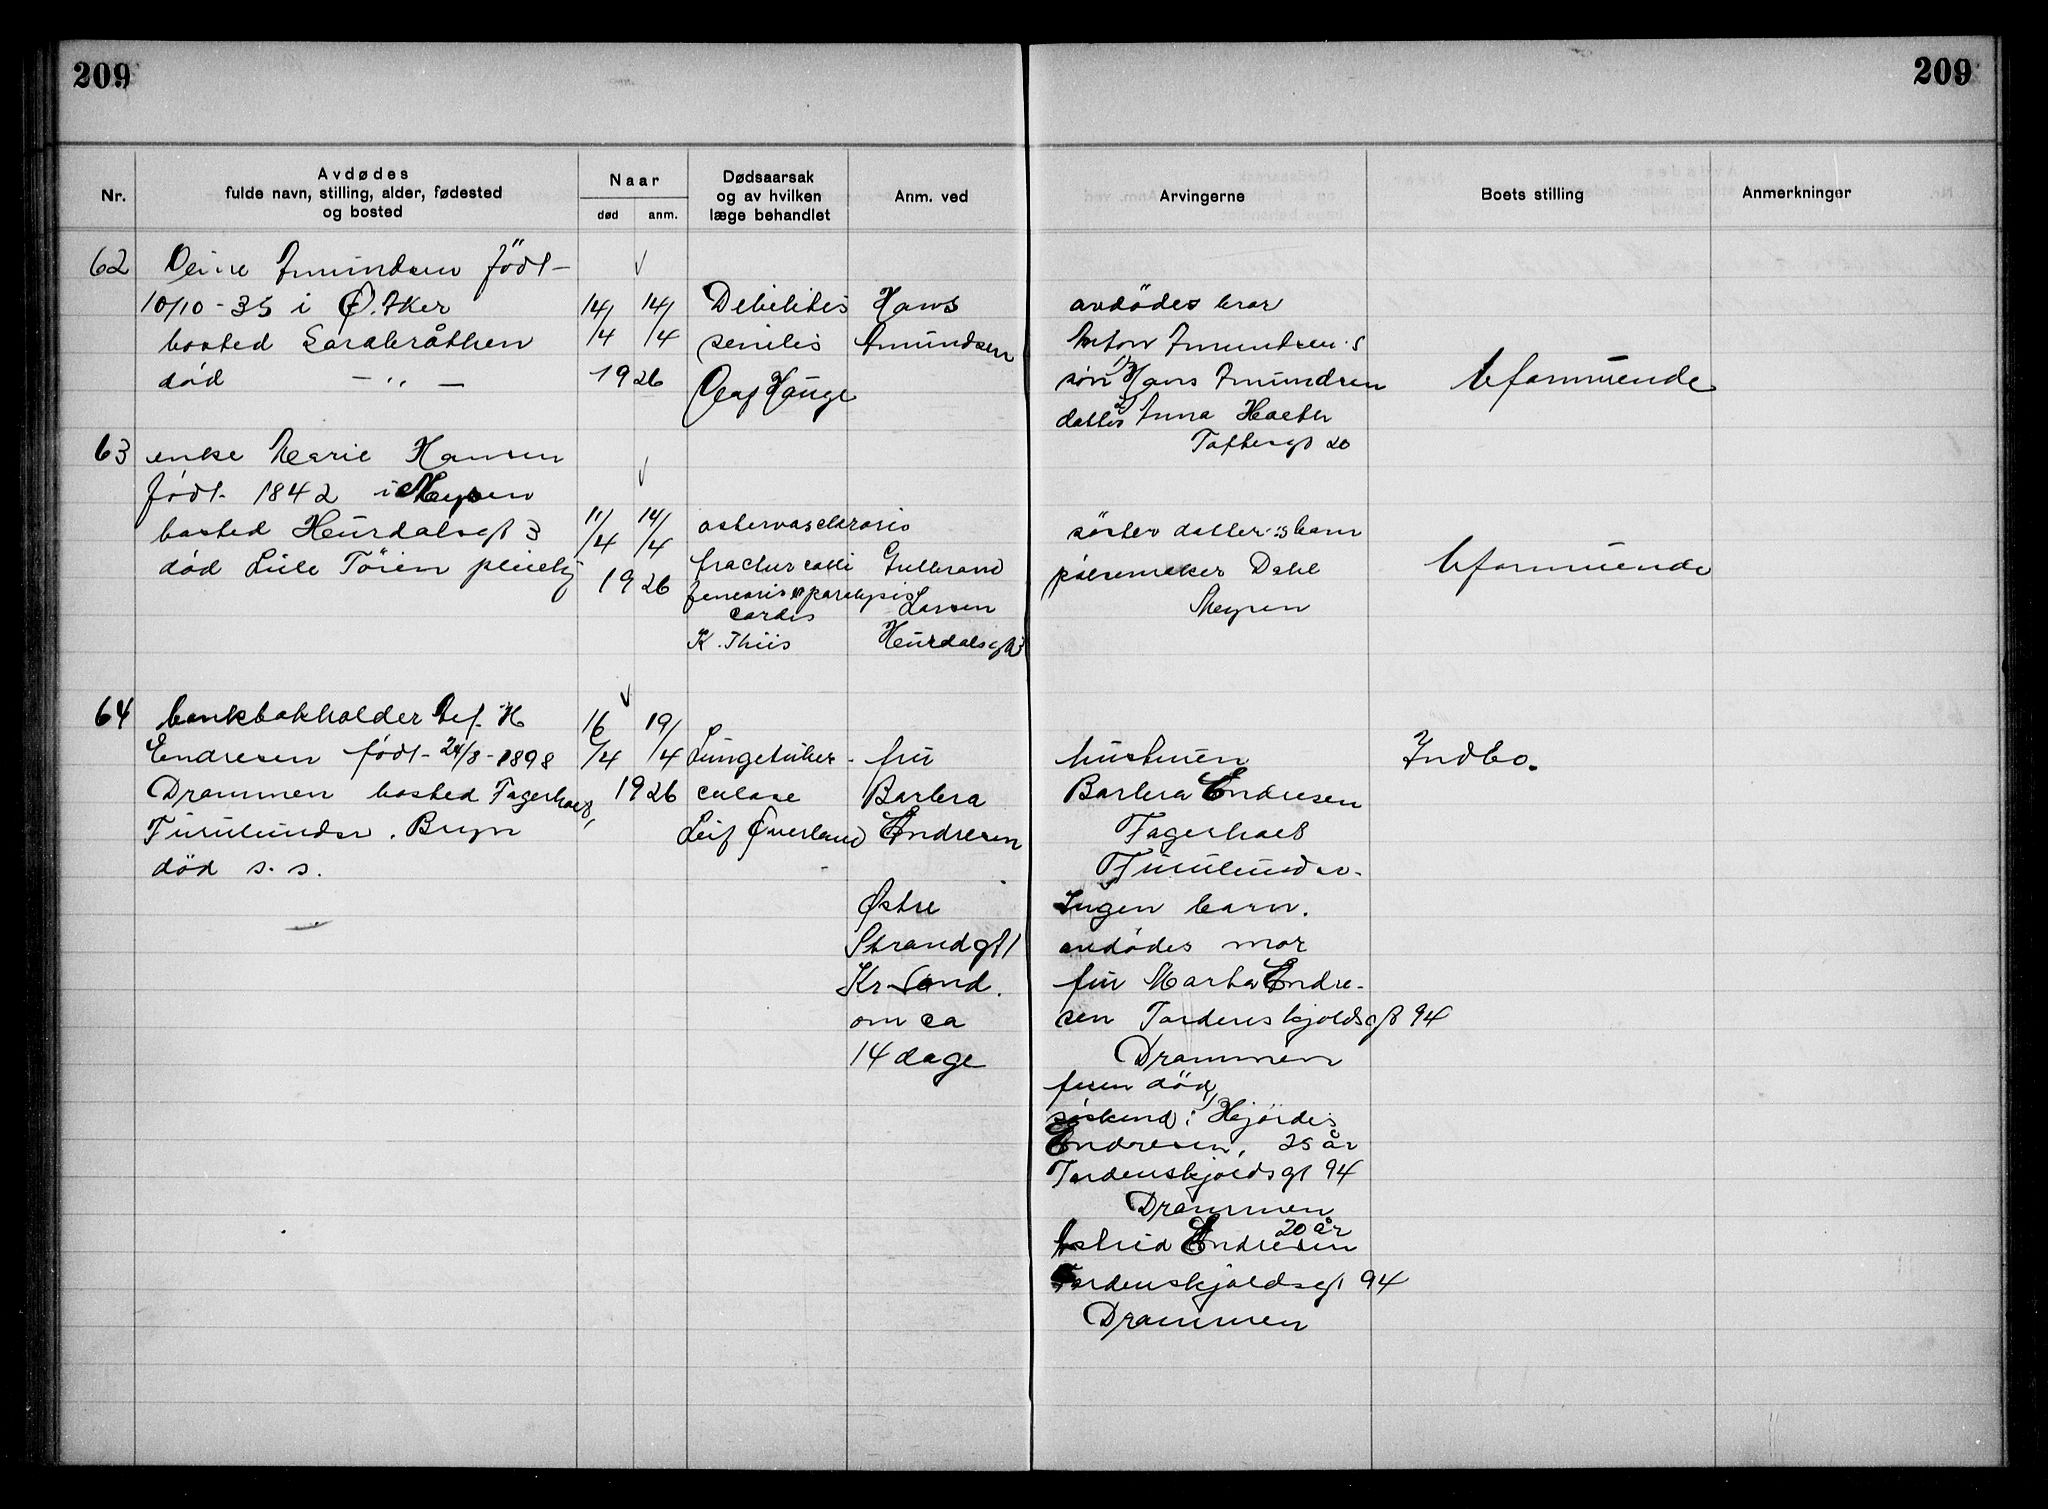 209
209
Nr.
Avdødes
fulde navn, stilling, alder, fødested
og bosted
Naar
død
anm.
Dødsaarsak
og av hvilken
læge behandlet
Anm. ved
Arvingerne
Boets stilling
Anmerkninger
62
Amundsen født
10/10-35 i Ø. Aker
bosted Sarabråthen
død — „ —
14/4 14/4
1926
Debilitas
senilis
Olaf Hauge
Hans
Amundsen
avdødes bror
Anton Amundsen s
søn 1) Hans Amundsen
datter 2) Anna
Toftesgt 20
Uformuende
63
enke Marie Hansen
født 1842 i Mysen
bosted Heurdalsgt 3
død Lille Tøien pleiehj
11/4 14/4
1926
fractur colli
femoris paralysis
cordis
K. Thiis
Gulbrand
Larsen
Heurdalsgt 3
søster datter s barn
pølsemaker Dahl
Mysen
Uformuende
64
bankbokholder Alf. H
Endresen født 24/8-1898
Drammen bosted
Furulundsv. Bryn
død s. s.
16/4 19/4
1926
Lungetuber-
culose
Leif Øverland
fru
Barbra
Endresen
Østre
Strandgt 1
Kr Sand.
om ca
14 dage
hustruen
Barbra Endresen
Furulundsv.
Ingen barn.
avdødes mor
fru Marta Endre-
sen Tordenskjoldsgt 94
Drammen
faren død,
søskend: Hjørdis
Endresen, 25 år
Tordenskjoldsgt 94
Drammen
20 år
Astrid Endresen
Tordenskjoldsgt 94
Drammen
Indbo.